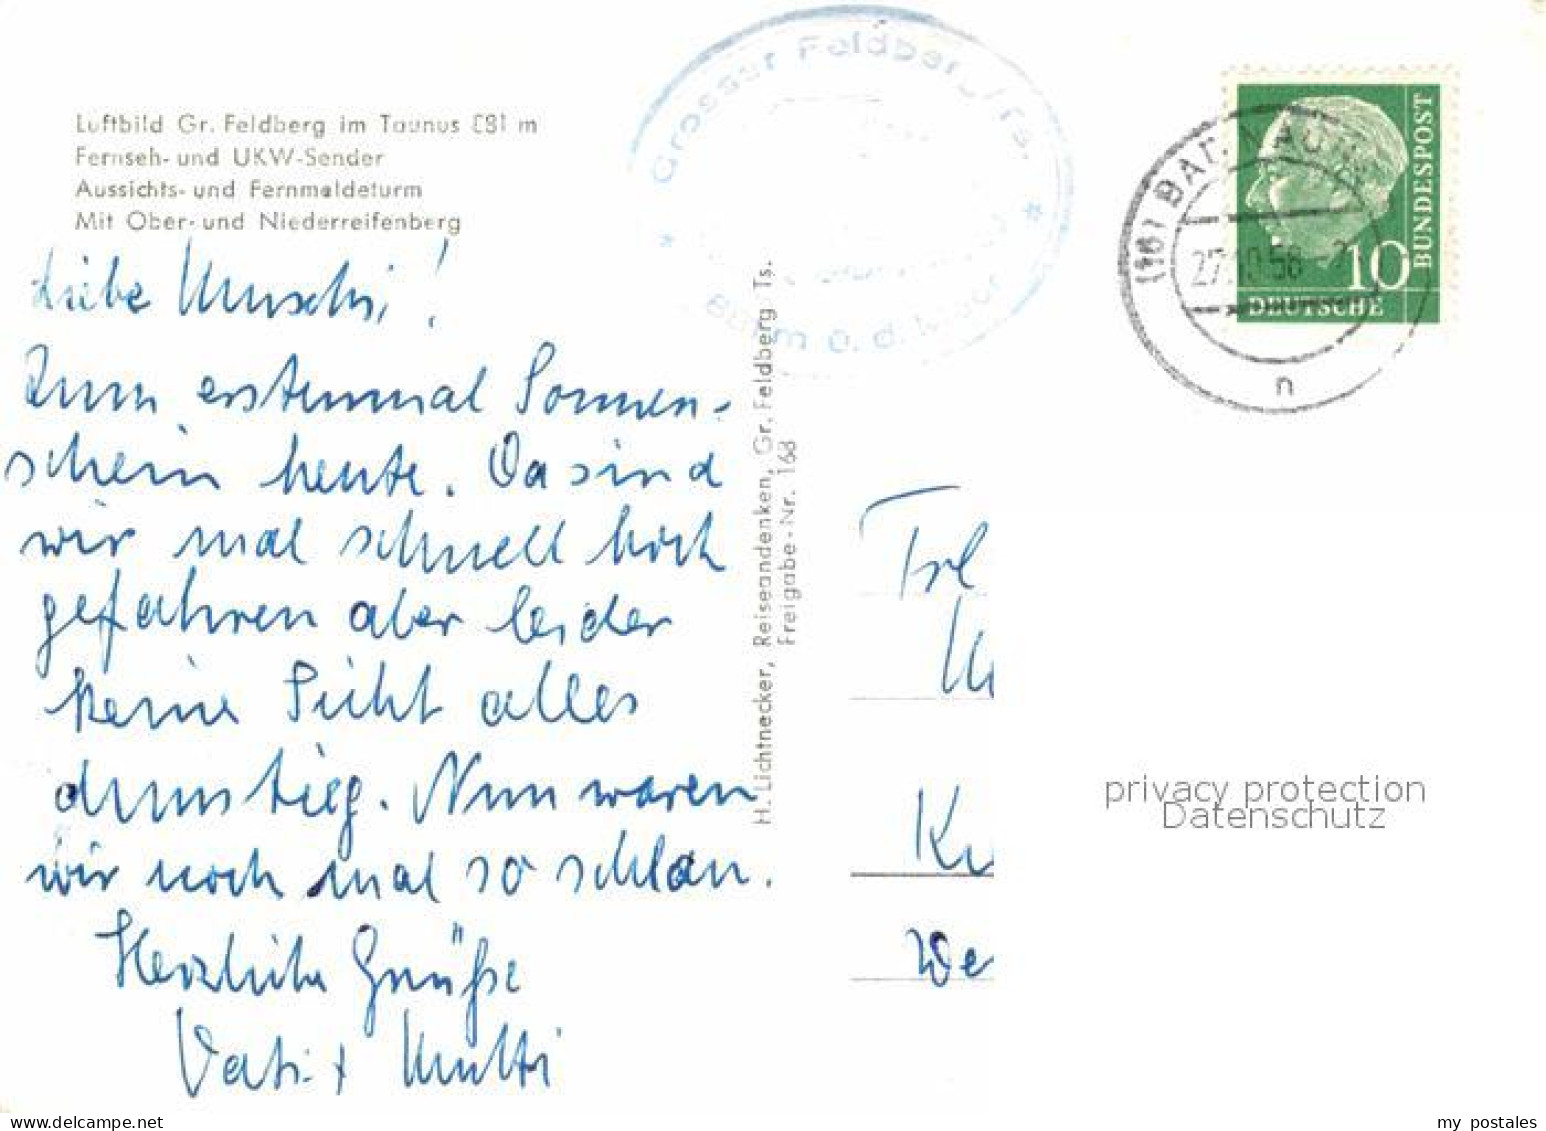 Luftbild Gr. Feldberg im Taunus 881 m
Fernseh- und UKW-Sender
Aussichts- und Fernmeldeturm
Mit Ober- und Niederreifenberg
Liebe Muschi!
Zum erstenmal Sonnen-
schein heute. Da sind
wir mal schnell hoch
gefahren aber leider
keine Sicht alles
dunstig. Nun waren
wir noch mal so schlau.
Herzliche Grüße
Vati + Mutti
H. Lichtnecker, Reiseandenken, Gr. Feldberg Ts.
Freigabe-Nr. 168
Grosser Feldberg/Ts.
(16) BAD NAU
27.10.58
n
10
BUNDESPOST
DEUTSCHE
Frl
We
privacy protection
Datenschutz
my postales